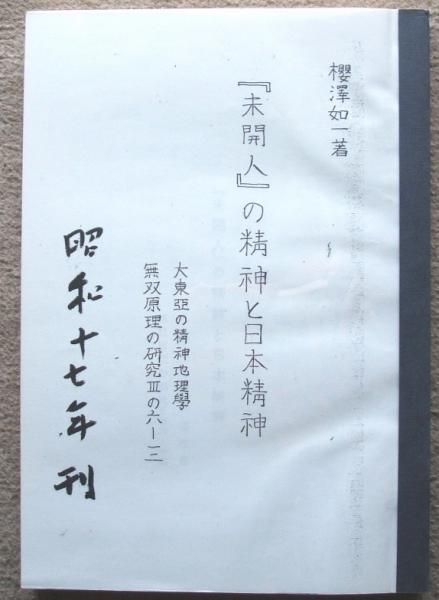 櫻澤如一著
『未開人』の精神と日本精神
大東亞の精神地理學
無双原理の研究Ⅲの六ー三
昭和十七年刊